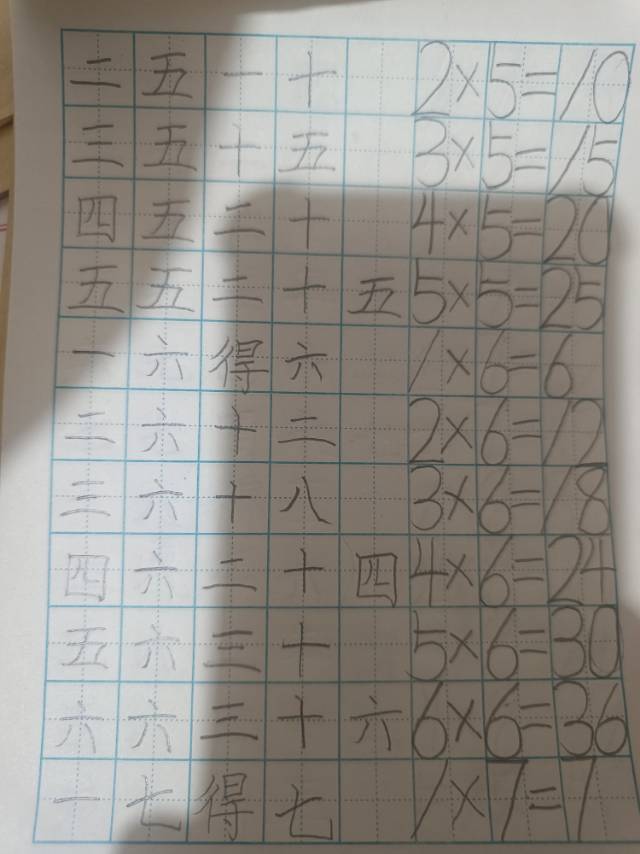 二五一十 2×5=10
三五十五 3×5=15
四五二十 4×5=20
五五二十五 5×5=25
一六得六 1×6=6
二六十二 2×6=12
三六十八 3×6=18
四六二十四 4×6=24
五六三十 5×6=30
六六三十六 6×6=36
一七得七 1×7=7